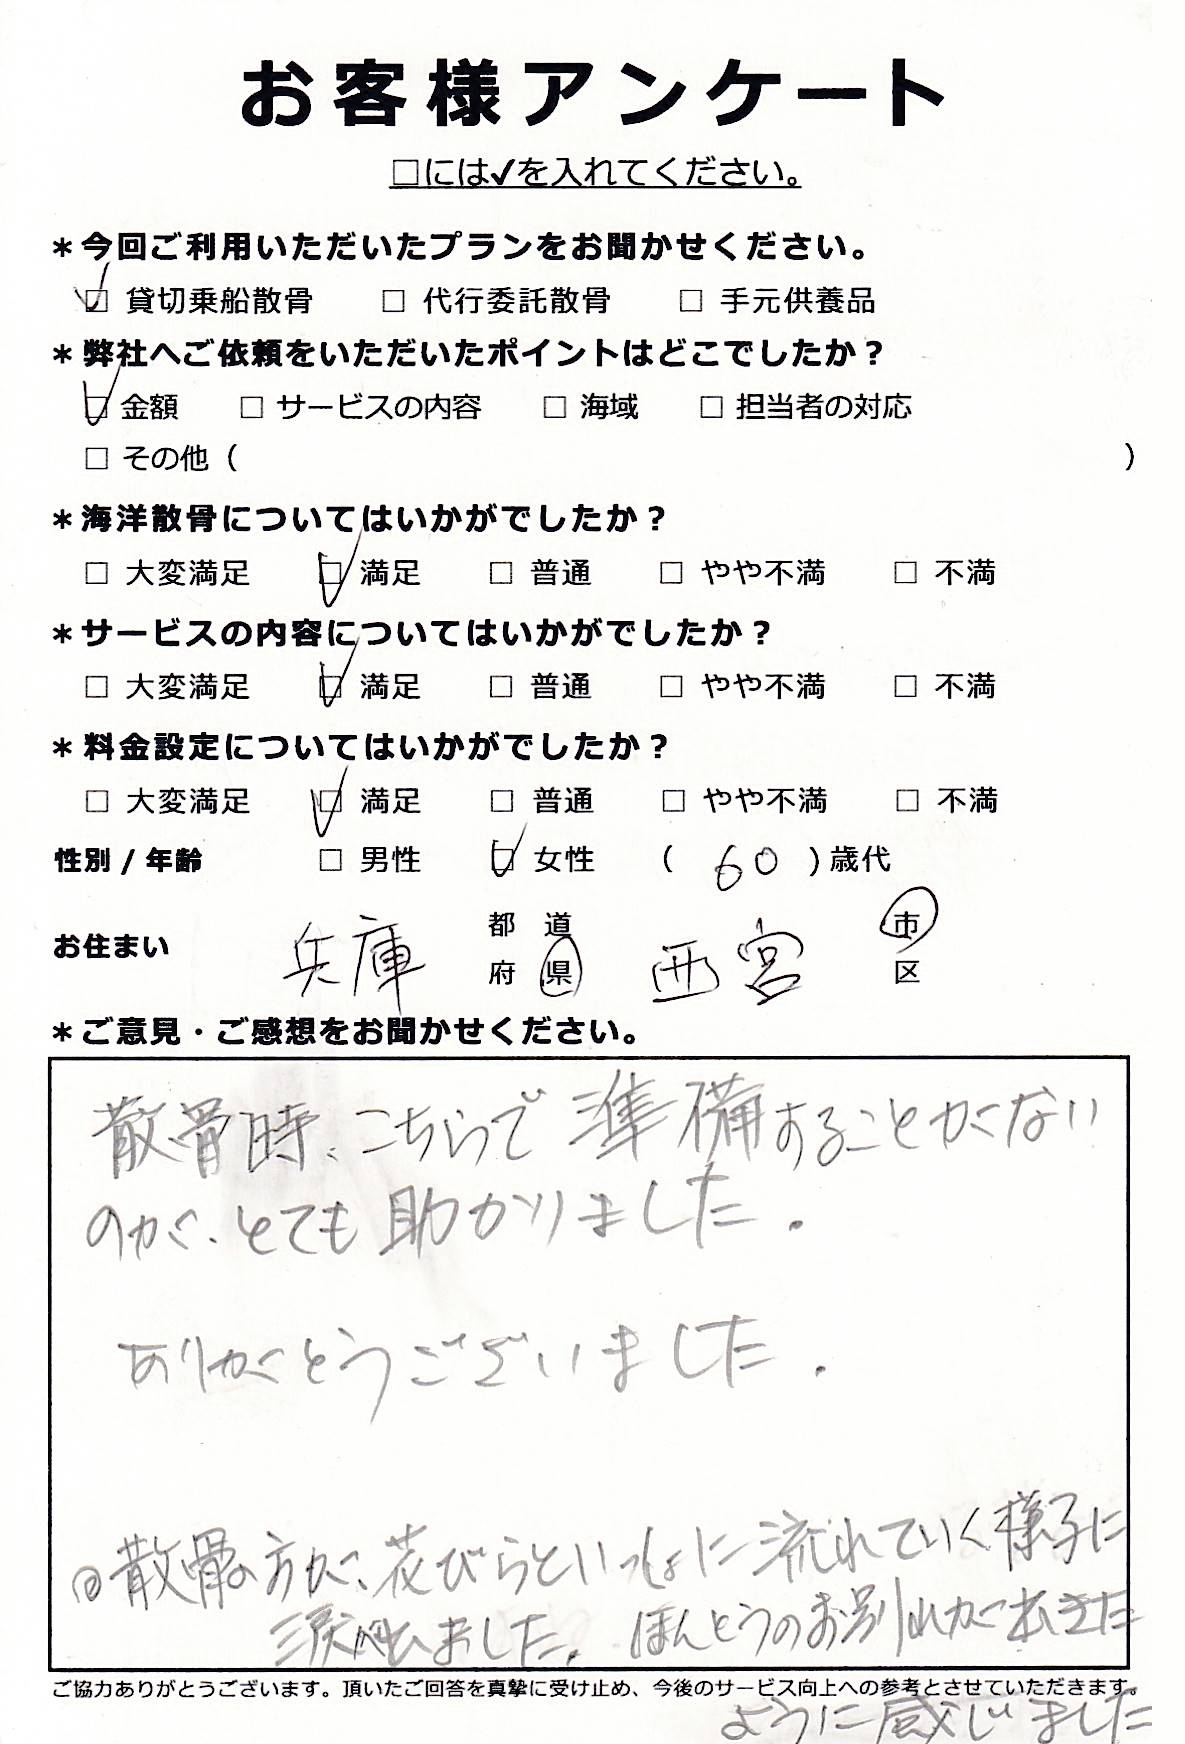 お客様アンケート
□には✓を入れてください。
＊今回ご利用いただいたプランをお聞かせください。
☑ 貸切乗船散骨 □ 代行委託散骨 □ 手元供養品
＊弊社へご依頼をいただいたポイントはどこでしたか？
☑ 金額 □ サービスの内容 □ 海域 □ 担当者の対応
□ その他（ ）
＊海洋散骨についてはいかがでしたか？
□ 大変満足 ☑ 満足 □ 普通 □ やや不満 □ 不満
＊サービスの内容についてはいかがでしたか？
□ 大変満足 ☑ 満足 □ 普通 □ やや不満 □ 不満
＊料金設定についてはいかがでしたか？
□ 大変満足 ☑ 満足 □ 普通 □ やや不満 □ 不満
性別 / 年齢 □ 男性 ☑ 女性 （ 60 ）歳代
お住まい 兵庫 都 道 府 県 西宮 市 区
＊ご意見・ご感想をお聞かせください。
散骨時、こちらで準備することがない
のが、とても助かりました.
ありがとうございました.
◎散骨の方が、花びらといっしょに流れていく様子に
涙しました. ほんとうのお別れができた
ご協力ありがとうございます。頂いたご回答を真摯に受け止め、今後のサービス向上への参考とさせていただきます。
ように感じました